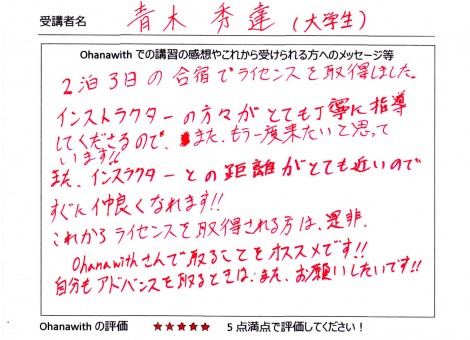 受講者名 青木 秀達 (大学生)
Ohanawith での講習の感想やこれから受けられる方へのメッセージ等
2泊3日の合宿でライセンスを取得しました。
インストラクターの方々がとても丁寧に指導
してくださるので、また、もう一度来たいと思って
います!!
また、インスラクターとの距離がとても近いので
すぐに仲良くなれます!!
これからライセンスを取得される方は、是非、
Ohanawithさんで取ることをオススメです!!
自分もアドバンスを取るときは、また、お願いしたいです!!
Ohanawith の評価 ★★★★★ 5 点満点で評価してください!